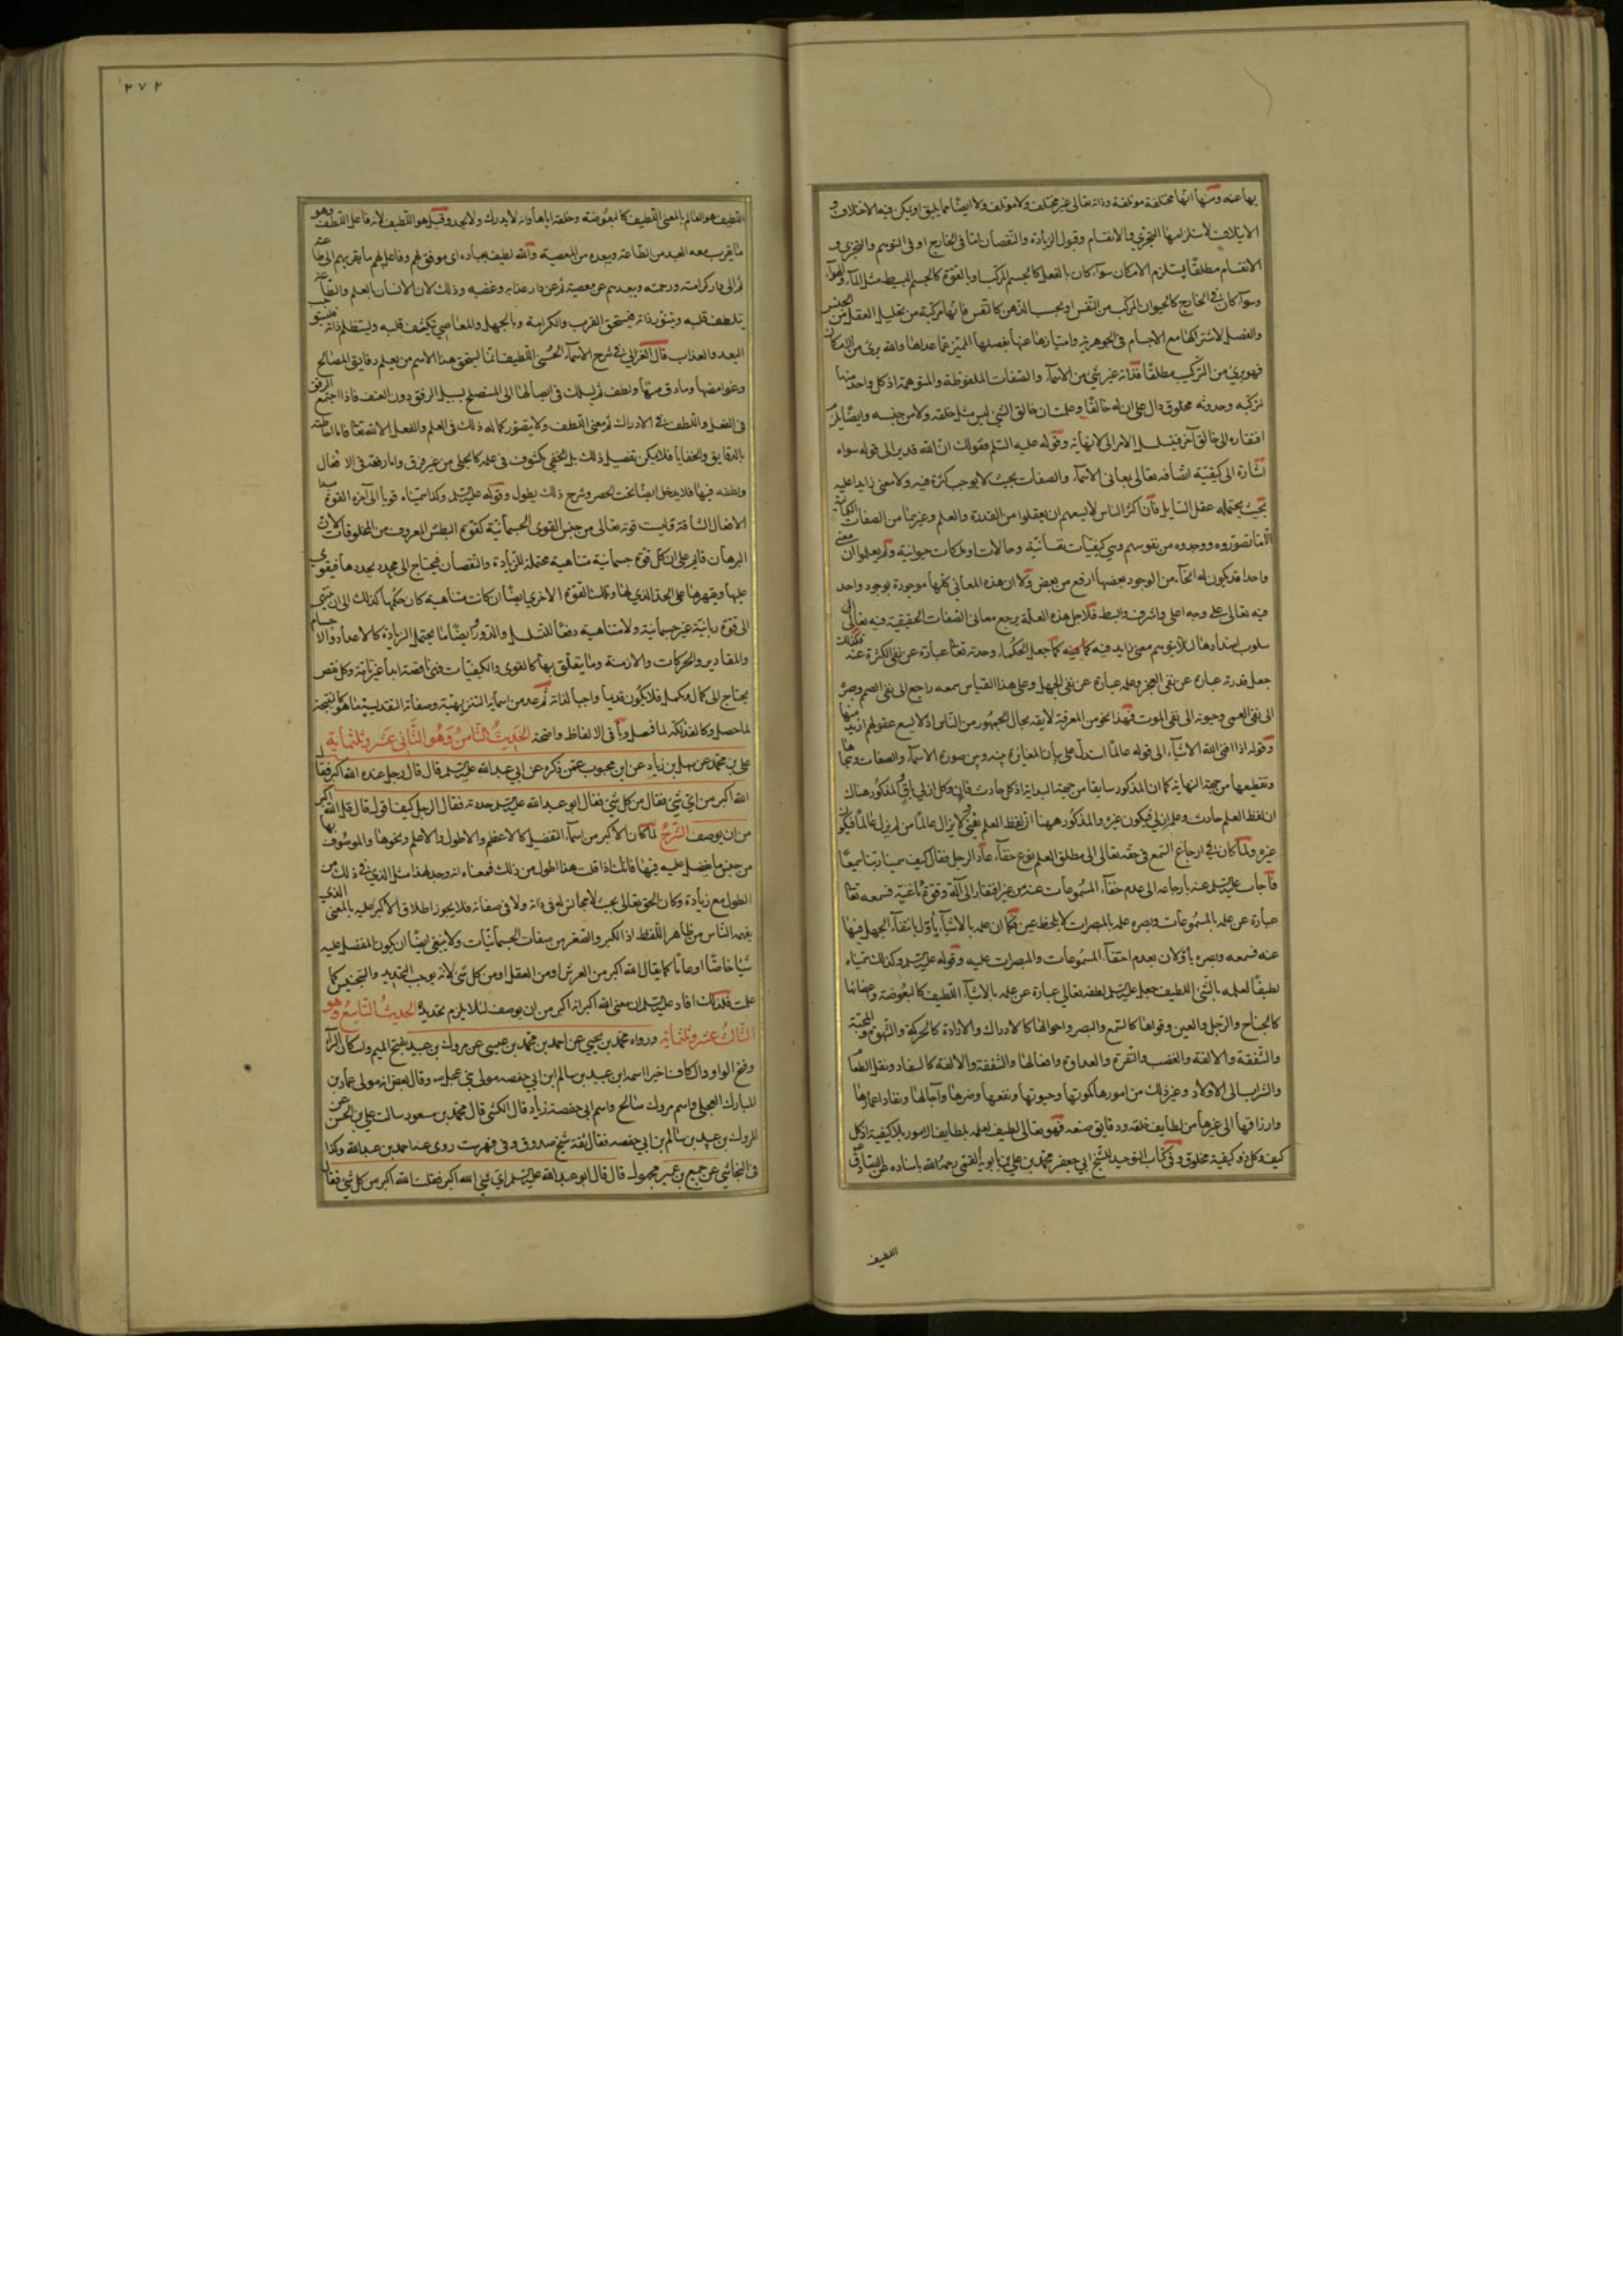 بها عنه ومنها انها مختلفة موتلفة وذاته تعالى غير مختلف ولا موتلف ولا ايضا مما يليق او يمكن فيه الاختلاف و
الايتلاف لاستلزامهما التجزي والانقسام وقبول الزيادة والنقصان اما في الخارج او في التوهم والتجزي و
الانقسام مطلقا يستلزم الامكان سوآء كان بالفعل كالجسم المركب او بالقوة كالجسم البسيط مثل المآء والهوآء
وسوآء كان في الخارج كالحيوان المركب من النفس او بحسب الذهن كالنفس فانها مركبة من تحليل العقل من الجنس
والفصل لاشتراكها مع الاجسام في الجوهرية وامتيازها عنها بفصلها المميز عما عداها والله برئ من الامكان
فهو برئ من التركيب مطلقا فذاته غير شئ من الاسمآء والصفات الملفوظة والمتوهمة اذ كل واحد منها
تركبه وحدوثه مخلوق دال على ان له خالقا وعلمت ان خالق الشئ ليس مثل خلقه ولا من جنسه وايضا يلزم
افتقاره الى خالق آخر فيتسلسل الامر الى لا نهاية وقوله عليه السلم فقولك ان الله قدير الى قوله سواه
اشارة الى كيفية اتصافه تعالى بمعاني الاسمآء والصفات بحيث لا يوجب كثرة فيه ولا معنى زايدا عليه
بحيث يحتمله عقل السايل فان اكثر الناس لا يسعهم ان يعقلوا من القدرة والعلم وغيرهما من الصفات الكمالية
الا ما تصوروه ووجدوه من نفوسهم وهي كيفيات نفسانية وحالات او ملكات حيوانية ولم يعلموا ان معنى
واحدا قد يكون له انحآء من الوجود بعضها ارفع من بعض ولا ان هذه المعاني كلها موجودة بوجود واحد
فيه تعالى على وجه اعلى واشرف وابسط فلاجل هذه العلة يرجع معاني الصفات الحقيقية فيه تعالى الى
سلوب اضدادها لئلا يتوهم معنى زايد فيه كما جعل الحكمآء وحدته تعالى عبارة عن نفي الكثرة عنه فكذلك
جعل قدرته عبارة عن نفي العجز وعلمه عبارة عن نفي الجهل وعلى هذا القياس سمعه راجع الى نفي الصمم وبصره
الى نفي العمى وحيوته الى نفي الموت فهذا نحو من المعرفة لايقه بحال الجمهور من الناس اذ لا يسع عقولهم ازيد منها
وقوله اذا افنى الله الاشيآء الى قوله عالما استدل على بيان المغايرة بينه وبين صورة الاسمآء والصفات وهجاها
وتقطيعها من جهة النهاية كما ان المذكور سابقا من جهة البداية اذ كل حادث فان وكل ازلي باق والمذكور هناك
ان لفظ العلم حادث وعلمه ازلي فيكون غيره والمذكور ههنا ان لفظ العلم يفنى ولا يزال عالما من لم يزل عالما فيكون
غيره ولما كان في ارجاع السمع في حقه تعالى الى مطلق العلم نوع خفآء عاد الرجل فقال كيف سمينا ربنا سميعا
فاجاب عليه السلم عنه بارجاعه الى عدم خفآء المسموعات عنه من غير افتقار الى آلة وقوة دماغية فسمعه تعالى
عبارة عن علمه بالمسموعات وبصره علمه بالمبصرات لا بلحظ عين فكما ان علمه بالاشيآء يأول بانتفآء الجهل فيها
عنه فسمعه وبصره يأولان بعدم اختفآء المسموعات والمبصرات عليه وقوله عليه السلم وكذلك سميناه
لطيفا لعلمه بالشئ اللطيف جعل عليه السلم لطفه تعالى عبارة عن علمه بالاشيآء اللطيف كالبعوضة واعضائها
كالجناح والرجل والعين وقواها كالسمع والبصر واحوالها كالادراك والارادة كالحركة والشهوة والمحبة
والشفقة والالفة والغضب والنفرة والعداوة وافعالها والشفقة والالفة كالسفاد ونقل الطعام
والشراب الى الاولاد وغير ذلك من امورها كموتها وحيوتها ونفعها وضرها وآجالها ونفاد اعمارها
وارزاقها الى غيرها من لطايف خلقه ودقايق صنعه فهو تعالى لطيف لعلمه بلطايف الامور بلا كيفية اذ كل
كيفية وكل ذو كيفية مخلوق وفي كتاب التوحيد للشيخ ابي جعفر محمد بن علي بن بابويه القمي رحمه الله باسناده عن الصادق
اللطيف
٢٧٢
اللطيف هو العالم بالمعنى اللطيف كالبعوضة وخلقه اياها وانه لا يدرك ولا يحد وقيل هو اللطيف لانه فاعل اللطف وهو
ما يقرب معه العبد من الطاعة ويبعده من المعصية والله لطيف بعباده اى موفق لهم وفاعل لهم ما يقربهم الى طاعته
ثم الى دار كرامته ورحمته ويبعدهم عن معصيته ثم عن دار عذابه وغضبه وذلك لان الانسان بالعلم والطاعة
يتلطف قلبه ويتنور ذاته فيستحق القرب والكرامة وبالجهل والمعاصي تكثف قلبه ويستظلم ذاته فيستوجب
البعد والعذاب قال الغزالي في شرح الاسمآء الحسنى اللطيف انما يستحق هذا الاسم من يعلم دقايق المصالح
وغوامضها وما دق منها ولطف ثم يسلك في ايصالها الى المستصلح سبيل الرفق دون العنف فاذا اجتمع الرفق
في الفعل واللطف في الادراك ثم معنى اللطف ولا يتصور كماله ذلك في العلم والفعل الا لله تعالى فاما احاطته
بالدقايق والخفايا فلا يمكن تفصيل ذلك بل الخفي مكشوف في علمه كالجلي من غير فرق واما رفقه في الافعال
ولطفه فيها فلا يدخل ايضا تحت الحصر وشرح ذلك يطول وقوله عليه السلم وكذا سميناه قويا الى آخره القوة مبدا
الافعال الشاقة وليست قوته تعالى من جنس القوى الجسمانية كقوة البطش المعروف من المخلوقات لان
البرهان قايم على ان كل قوة جسمانية متناهية محتملة للزيادة والنقصان فيحتاج الى محدد يحددها فيقوى
عليها ويقهرها على الحد الذي لها وتلك القوة الاخرى ايضا ان كانت متناهية كان حكمها كذلك الى ان ينتهي
الى قوة ربانية غير جسمانية ولا متناهية دفعا للتسلسل والدور وايضا ما يحتمل الزيادة كالاعداد والاجسام
والمقادير والحركات والازمنة وما يتعلق بها كالقوى والكيفيات فهي ناقصة ابدا غير تامة وكل نقص
يحتاج الى كمال ومكمل فلا يكون قديما واجبا لذاته ثم عد من اسمآئه التنزيهية وصفاته التقديسية ما هو كالنتيجة
لما حصل وكالفذلكة لما فصل وباقي الالفاظ واضحة الحديث الثامن وهو الثاني عشر وثلثمائة
علي بن محمد عن سهل بن زياد عن ابن محبوب عمن ذكره عن ابي عبد الله عليه السلم قال قال رجل عنده الله اكبر فقال
الله اكبر من اى شئ فقال من كل شئ فقال ابو عبد الله عليه السلم حددته فقال الرجل كيف اقول قال قل الله اكبر
من ان يوصف الشرح لما كان الاكبر من اسمآء التفضيل كالاعظم والاطول والاعلم ونحوها والموصوف بها
من جنس ما يفضل عليه فيها فانك اذا قلت هذا اطول من ذلك فمعناه انه وجد لهذا مثل الذي في ذلك من
الطول مع زيادة وكان الحق تعالى بحيث لا مجانس له في ذاته ولا في صفاته فلا يجوز اطلاق الاكبر عليه بالمعنى الذي
يفهمه الناس من ظاهر اللفظ اذ الكبر والصغر من صفات الجسمانيات ولا ينبغي ايضا ان يكون المفضل عليه
شيئا خاصا او عاما كما يقال الله اكبر من العرش او من العقل او من كل شئ لانه يوجب التحديد والتجنيس كما
علمت فلذلك افاد عليه السلم ان معنى الله اكبر انه اكبر من ان يوصف لئلا يلزم تحديده الحديث التاسع وهو
الثالث عشر وثلثمائة ورواه محمد بن يحيى عن احمد بن محمد بن عيسى عن مروك بن عبيد بفتح الميم واسكان الرآء
وفتح الواو والكاف اخيرا اسمه ابن عبيد بن سالم ابن ابي حفصه مولى بني عجل وقال بعض انه مولى عمار بن
المبارك العجلي واسم مروك صالح واسم ابي حفصة زياد قال الكشي قال محمد بن مسعود سالت علي بن الحسن عن
المروك بن عبيد بن سالم بن ابي حفصه فقال ثقة شيخ صدوق وفي فهرست روى عنه احمد بن عبد الله وكذا
في النجاشي عن جميع بن عمير مجهول قال قال ابو عبد الله عليه السلم اى شئ الله اكبر فقلت الله اكبر من كل شئ فقال